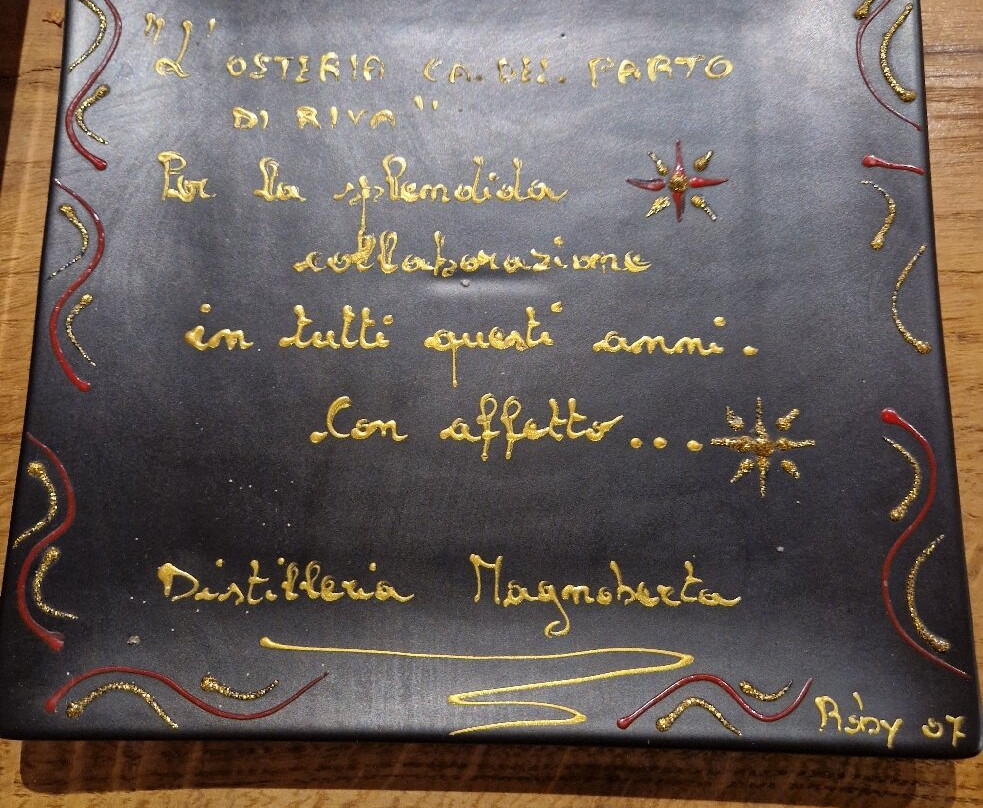 "L'OSTERIA CA. DEL. PARTO
DI RIVA"
Per la splendida
collaborazione
in tutti questi anni.
Con affetto...
Distilleria Magnoberta
07